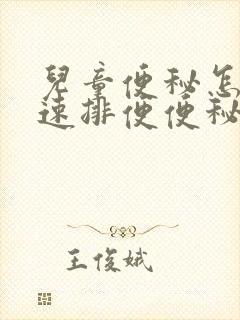 兒童便秘怎
速排便便秘
王俊娥